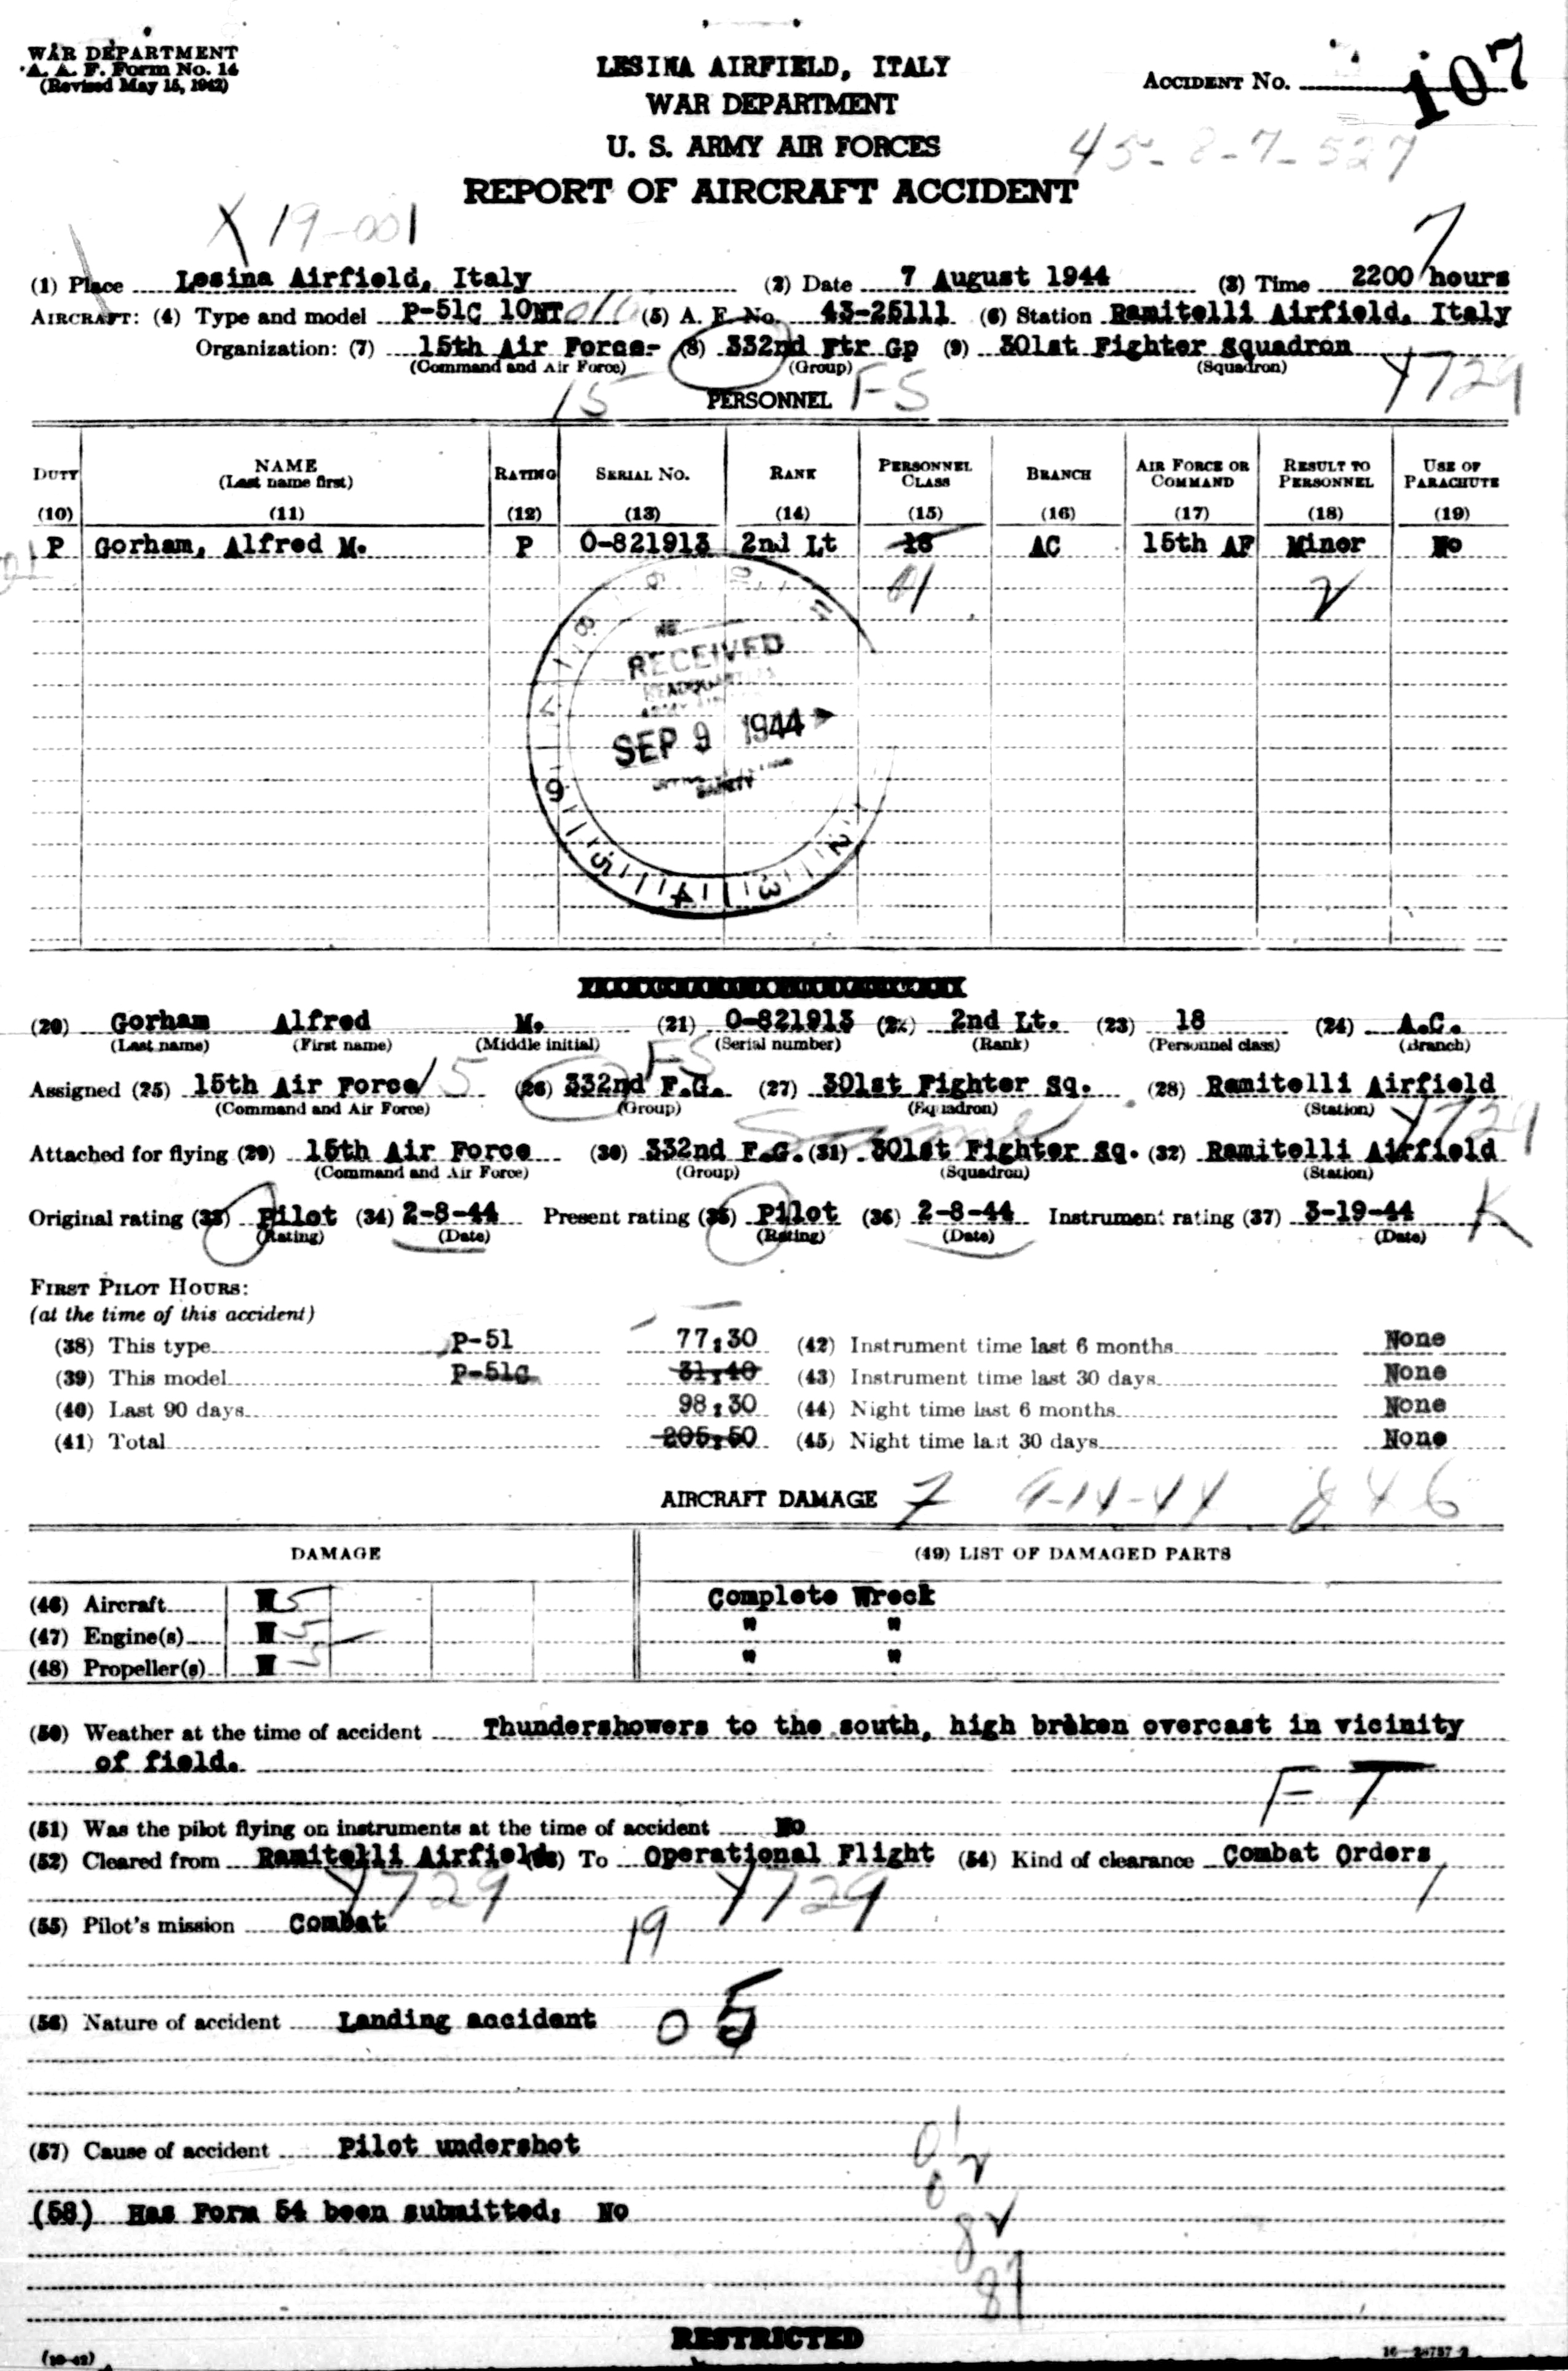 WAR DEPARTMENT
A. A. F. Form No. 14
(Revised May 15, 1942)
LESINA AIRFIELD, ITALY
WAR DEPARTMENT
U. S. ARMY AIR FORCES
REPORT OF AIRCRAFT ACCIDENT
ACCIDENT No. 107
45-8-7-527
X 19-001
7
(1) Place Lesina Airfield, Italy (2) Date 7 August 1944 (3) Time 2200 hours
AIRCRAFT: (4) Type and model P-51C 10NT (5) A. F. No. 43-25111 (6) Station Ramitelli Airfield, Italy
Organization: (7) 15th Air Force- (8) 332nd Ftr Gp (9) 301st Fighter Squadron
(Command and Air Force) (Group) (Squadron)
15 PERSONNEL FS Y729
DUTY NAME (Last name first) RATING SERIAL No. RANK PERSONNEL CLASS BRANCH AIR FORCE OR COMMAND RESULT TO PERSONNEL USE OF PARACHUTE
(10) (11) (12) (13) (14) (15) (16) (17) (18) (19)
P Gorham, Alfred M. P O-821913 2nd Lt 18 AC 15th AF Minor No
01 2
RECEIVED
HEADQUARTERS
SEP 9 1944
SAFETY
(20) Gorham Alfred M. (21) O-821913 (22) 2nd Lt. (23) 18 (24) A.C.
(Last name) (First name) (Middle initial) (Serial number) (Rank) (Personnel class) (Branch)
Assigned (25) 15th Air Force 15 (26) 332nd F.G. FS (27) 301st Fighter Sq. (28) Ramitelli Airfield
(Command and Air Force) (Group) (Squadron) (Station) Y729
Same
Attached for flying (29) 15th Air Force (30) 332nd F.G. (31) 301st Fighter Sq. (32) Ramitelli Airfield
(Command and Air Force) (Group) (Squadron) (Station)
Original rating (33) Pilot (34) 2-8-44 Present rating (35) Pilot (36) 2-8-44 Instrument rating (37) 3-19-44 K
(Rating) (Date) (Rating) (Date) (Date)
FIRST PILOT HOURS:
(at the time of this accident)
(38) This type P-51 77:30 (42) Instrument time last 6 months None
(39) This model P-51C 31:40 (43) Instrument time last 30 days None
(40) Last 90 days 98:30 (44) Night time last 6 months None
(41) Total 205:50 (45) Night time last 30 days None
AIRCRAFT DAMAGE 7 9-14-44 846
DAMAGE (49) LIST OF DAMAGED PARTS
(46) Aircraft W 5 Complete Wreck
(47) Engine(s) W 5 " "
(48) Propeller(s) W 5 " "
(50) Weather at the time of accident Thundershowers to the south, high broken overcast in vicinity
of field.
F T
(51) Was the pilot flying on instruments at the time of accident No
(52) Cleared from Ramitelli Airfield (53) To Operational Flight (54) Kind of clearance Combat Orders
Y729 Y729 1
(55) Pilot's mission Combat 19
(56) Nature of accident Landing accident 05
(57) Cause of accident Pilot undershot
(58) Has Form 54 been submitted: No
RESTRICTED
(10-42) 16—28757-2